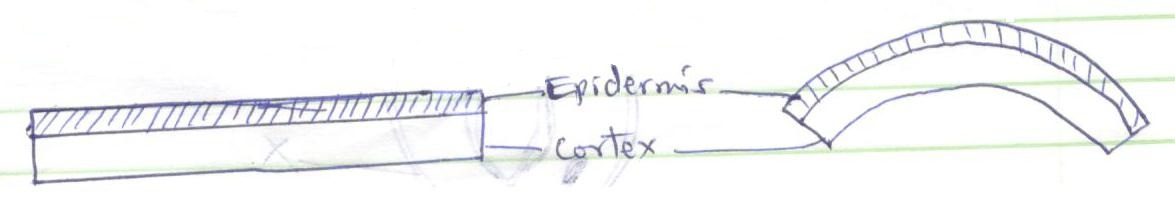 Epidermis
Cortex